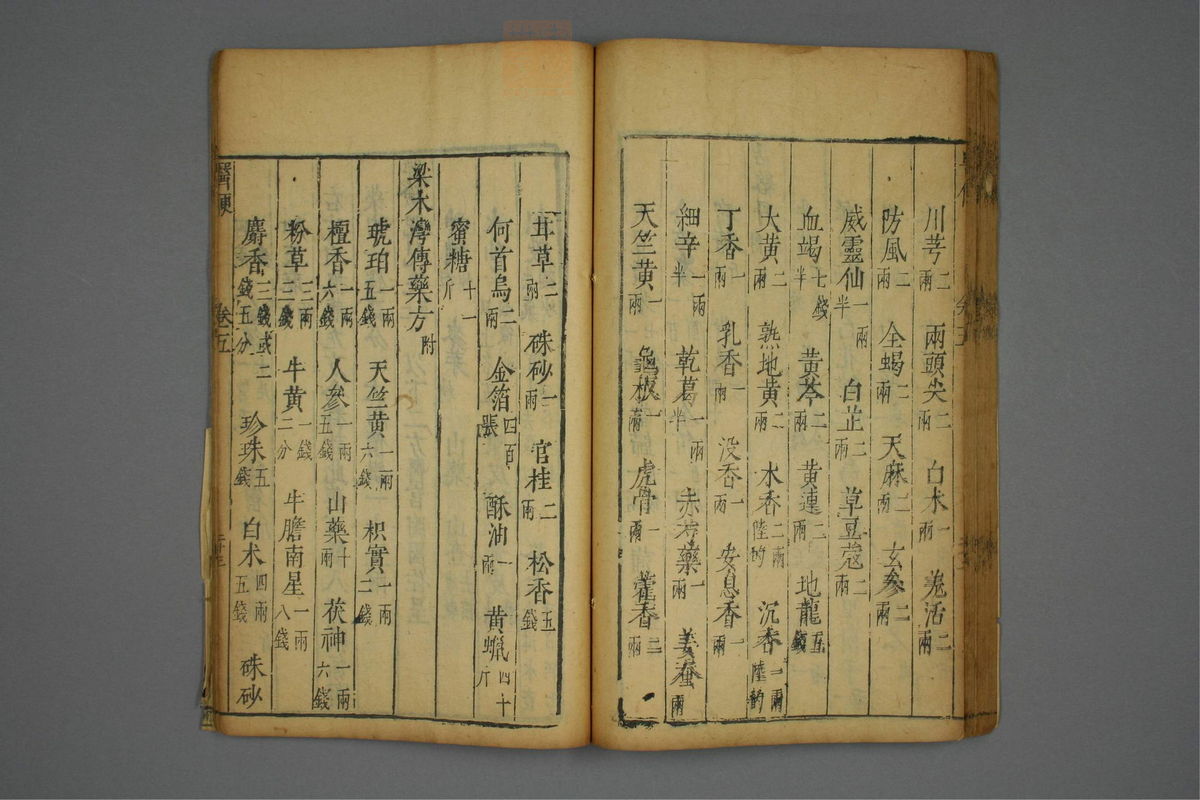 川芎二兩 兩頭尖二兩 白术一兩 羌活二兩
防風二兩 全蝎二兩 天麻二兩 玄參二兩
威靈仙一兩半 白芷二兩 草豆蔻二兩
血竭七錢半 黃芩二兩 黃連二兩 地龍五錢
大黃二兩 熟地黃二兩 木香二兩陸 沉香二兩陸
丁香一兩 乳香一兩 没香一兩 安息香一兩
細辛一兩半 乾葛一兩半 赤芍藥一兩 姜蚕一兩
天竺黃一兩 龜板一兩 虎骨一兩 藿香二兩
耳草二兩 硃砂一兩 官桂二兩 松香五錢
何首烏二兩 金箔四百張 酥油一兩 黃蝋四十斤
蜜糖十一斤
梁木灣傳藥方附
琥珀一兩五錢 天竺黃一兩六錢 枳實一兩二錢
檀香一兩六錢 人參一兩五錢 山藥十兩 茯神一兩六錢
粉草三兩三錢 牛黃一錢二分 牛膽南星一兩八錢
麝香三錢或二錢五分 珍珠五錢 白术四兩五錢 硃砂
醫便
卷五